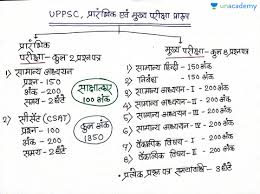 unacademy
UPPSC, प्रारंभिक एवं मुख्य परीक्षा प्रारूप
प्रारंभिक
परीक्षा - कुल 2 प्रश्नपत्र
1) सामान्य अध्ययन
प्रश्न - 150
अंक - 200
समय - 2 घंटे
2) सीसैट (CSAT)
प्रश्न - 100
अंक - 200
समय - 2 घंटे
साक्षात्कार
100 अंक
कुल अंक
मुख्य परीक्षा - कुल 8 प्रश्नपत्र
1) सामान्य हिन्दी - 150 अंक
2) निबंध - 150 अंक
3) सामान्य अध्ययन - I - 200 अंक
4) सामान्य अध्ययन - II - 200 अंक
5) सामान्य अध्ययन - III - 200 अंक
6) सामान्य अध्ययन - IV - 200 अंक
7) वैकल्पिक विषय - I - 200 अंक
8) वैकल्पिक विषय - II - 200 अंक
• प्रत्येक प्रश्न पत्र समयावधि - 3 घंटे